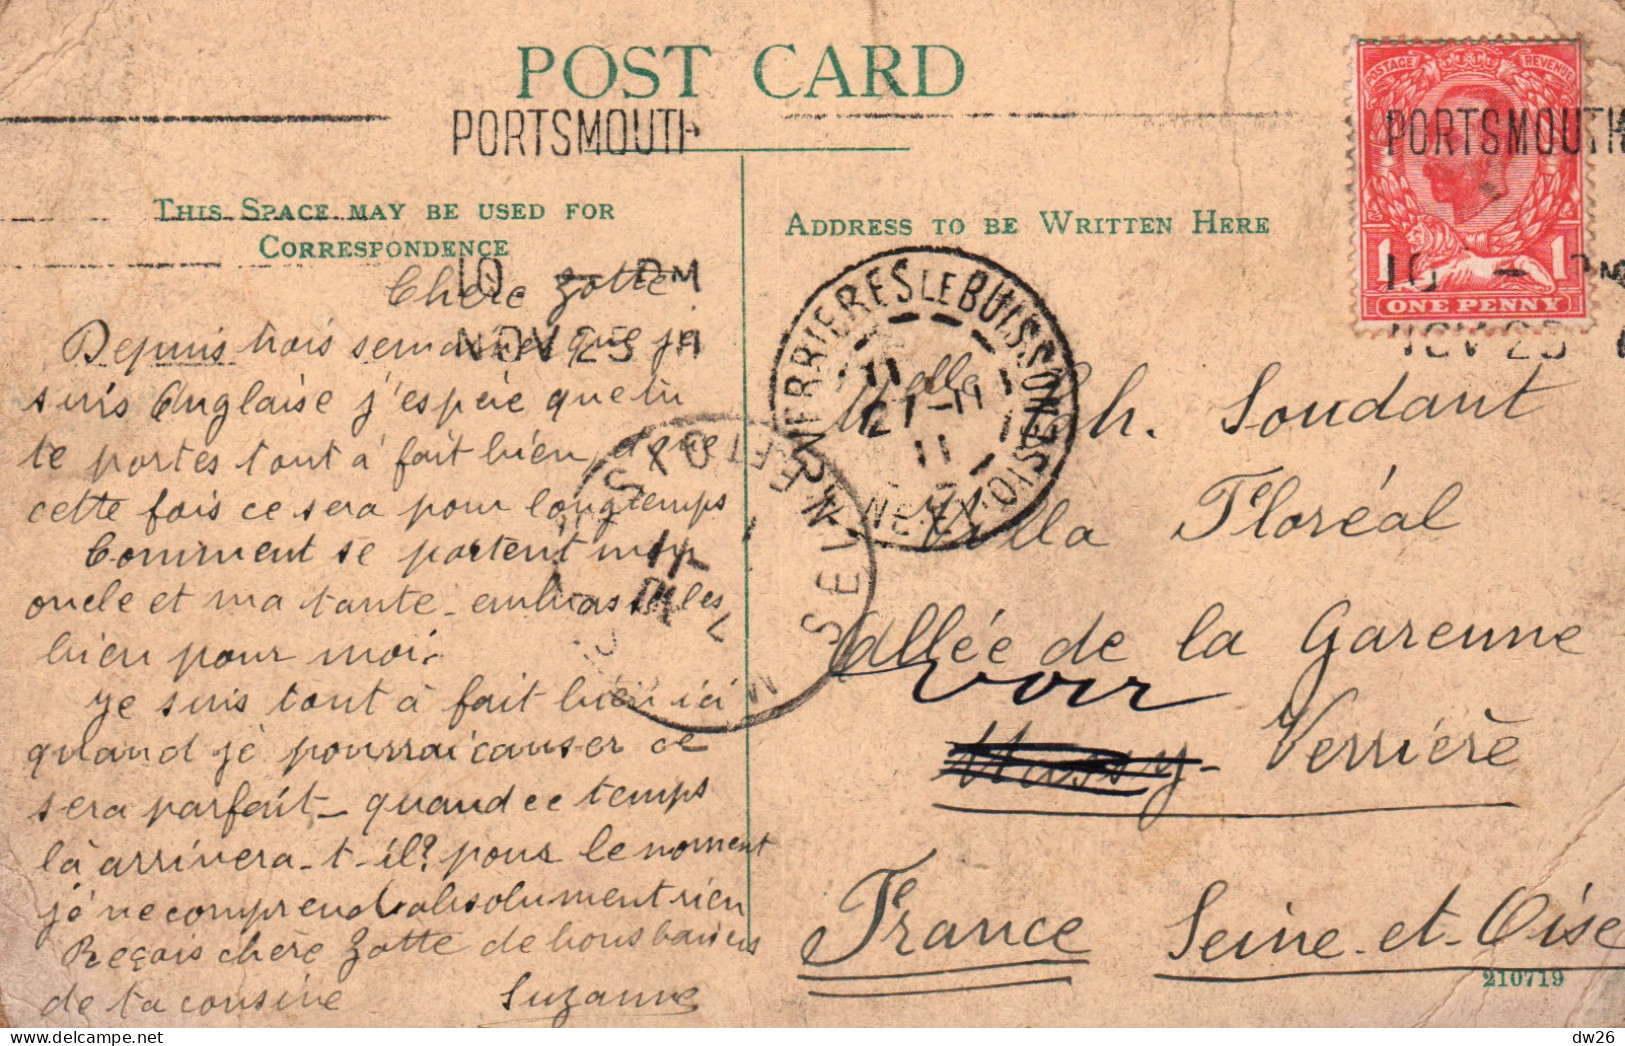 POST CARD
PORTSMOUTH
PORTSMOUTH
POSTAGE REVENUE
THIS SPACE MAY BE USED FOR
CORRESPONDENCE
ADDRESS TO BE WRITTEN HERE
10 - PM
NOV 25 11
10 - PM
NOV 25
1 1
ONE PENNY
VERRIERES LE BUISSON
SEINE-ET-OISE
27-11
11
Chère Zotte
Depuis trois semaines que je
suis Anglaise j'espère que tu
te portes tout à fait bien, et que
cette fois ce sera pour longtemps
Comment se portent mon
oncle et ma tante - embrasse les
bien pour moi.
Je suis tout à fait bien ici
quand je pourrai causer ce
sera parfait - quand ce temps
là arrivera-t-il? pour le moment
je ne comprend absolument rien
Reçois chère Zotte de bons baisers
de ta cousine Suzanne
Melle Ch. Soudant
Villa Floréal
Allée de la Garenne
voir
Massy - Verrière
France Seine-et-Oise
210719
dw26